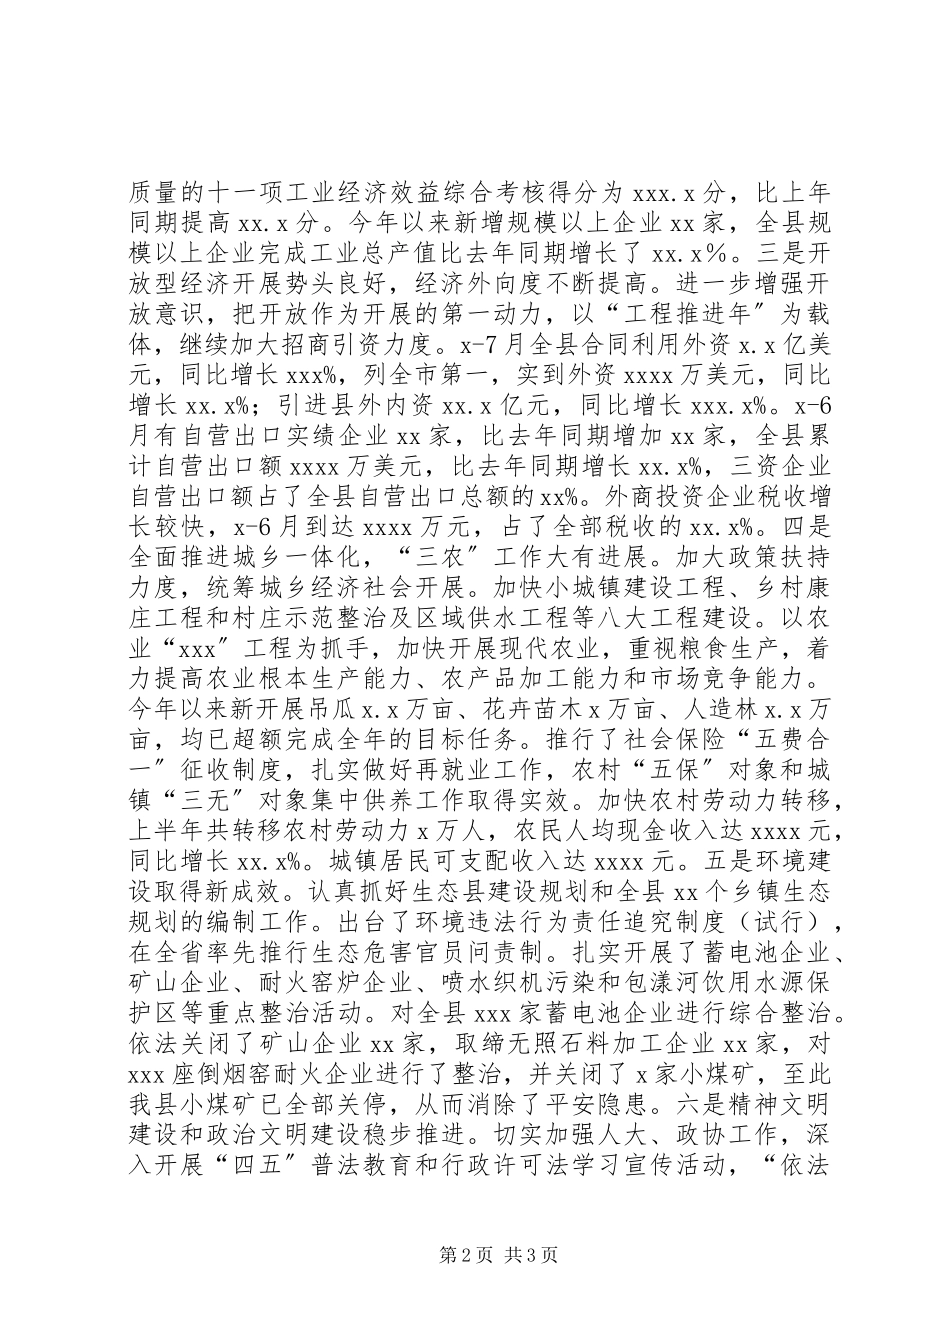 质量的十一项工业经济效益综合考核得分为 xxx.x 分，比上年
同期提高 xx.x 分。今年以来新增规模以上企业 xx 家，全县规
模以上企业完成工业总产值比去年同期增长了 xx.x％。三是开
放型经济开展势头良好，经济外向度不断提高。进一步增强开
放意识，把开放作为开展的第一动力，以“工程推进年〞为载
体，继续加大招商引资力度。x-7 月全县合同利用外资 x.x 亿美
元，同比增长 xxx%，列全市第一，实到外资 xxxx 万美元，同比
增长 xx.x%；引进县外内资 xx.x 亿元，同比增长 xxx.x%。x-6
月有自营出口实绩企业 xx 家，比去年同期增加 xx 家，全县累
计自营出口额 xxxx 万美元，比去年同期增长 xx.x%，三资企业
自营出口额占了全县自营出口总额的 xx%。外商投资企业税收增
长较快，x-6 月到达 xxxx 万元，占了全部税收的 xx.x%。四是
全面推进城乡一体化，“三农〞工作大有进展。加大政策扶持
力度，统筹城乡经济社会开展。加快小城镇建设工程、乡村康
庄工程和村庄示范整治及区域供水工程等八大工程建设。以农
业“xxx〞工程为抓手，加快开展现代农业，重视粮食生产，着
力提高农业根本生产能力、农产品加工能力和市场竞争能力。
今年以来新开展吊瓜 x.x 万亩、花卉苗木 x 万亩、人造林 x.x 万
亩，均已超额完成全年的目标任务。推行了社会保险“五费合
一〞征收制度，扎实做好再就业工作，农村“五保〞对象和城
镇“三无〞对象集中供养工作取得实效。加快农村劳动力转移，
上半年共转移农村劳动力 x 万人，农民人均现金收入达 xxxx 元，
同比增长 xx.x%。城镇居民可支配收入达 xxxx 元。五是环境建
设取得新成效。认真抓好生态县建设规划和全县 xx 个乡镇生态
规划的编制工作。出台了环境违法行为责任追究制度（试行），
在全省率先推行生态危害官员问责制。扎实开展了蓄电池企业、
矿山企业、耐火窑炉企业、喷水织机污染和包漾河饮用水源保
护区等重点整治活动。对全县 xxx 家蓄电池企业进行综合整治。
依法关闭了矿山企业 xx 家，取缔无照石料加工企业 xx 家，对
xxx 座倒烟窑耐火企业进行了整治，并关闭了 x 家小煤矿，至此
我县小煤矿已全部关停，从而消除了平安隐患。六是精神文明
建设和政治文明建设稳步推进。切实加强人大、政协工作，深
入开展“四五〞普法教育和行政许可法学习宣传活动，“依法
第 2 页 共 3 页